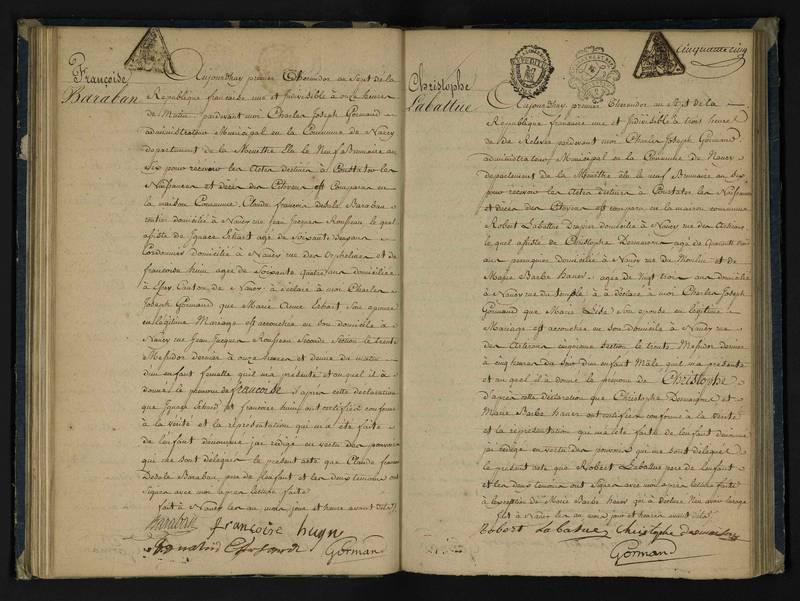 Françoise
Baraban
Aujourdhuy premier Thermidor an Sept de la
Republique francaise une et Indivisible à onze heures
du Matin pardevant moi Charles Joseph Gormand
administrateur Municipal en la Commune de Nancy
departement de la Meurthe Elu le Neuf Brumaire an
Six pour recevoir les Actes destinés à Constater les
Naissances et décès des Citoyens est Comparu en
la maison Commune Claude francois Baraban
rentier domicilié à Nancy rue Jean Jacques Rousseau le quel
assisté de Ignace Erhart agé de Soixante
Cordonnier domicilié à Nancy rue des Orphelines et de
francoise huin agée de Soixante quatre ans domiciliée
à Canton de Nancy à déclaré à moi Charles
Joseph Gormand que Marie Anne Erhart Son epouse
en légitime Mariage est accouchée en Son domicile à
Nancy rue Jean Jacques Rousseau Seconde Section le trente
Messidor dernier à onze heures et demie du matin
d'un enfant femelle qu'il m'a présenté et auquel il à
donné le prenom de francoise d'apres cette déclaration
que Ignace Erhard et francoise huin ont certifiée conforme
à la vérité et la représentation qui m'a été faite
de l'enfant dénommé j'ai rédigé en vertu des pouvoirs
qui me sont délégués le présent acte que Claude francois
Baraban pere de l'enfant et les deux témoins ont
Signés avec moi apres lecture faite
fait à Nancy les an mois jour et heure avant dits
Baraban francoise huyn
Gormand
Cinquante cinq
Christophe
Labattue
Aujourdhuy premier Thermidor an Sept de la
Republique francaise une et Indivisible à trois heures
de Relevée pardevant moi Charles Joseph Gormand
administrateur Municipal en la Commune de Nancy
departement de la Meurthe élu le neuf Brumaire an Six
pour recevoir les Actes destinés à Constater les Naissances
et décès des Citoyens est comparu en la maison commune
Robert Labattue Drapier domicilié à Nancy rue des Artisans
le quel assisté de Christophe agé de quarante
ans perruquier domicilié à Nancy rue du Moulin et de
Marie Barbe haner agée de Vingt trois ans domiciliée
à Nancy rue du temple à déclaré à moi Charles Joseph
Gormand que Marie Son epouse en légitime
Mariage est accouchée en son domicile à Nancy rue
des Artisans cinquieme Section le trente Messidor dernier
à cinq heures du Soir d'un enfant Mâle qu'il m'a présenté
et au quel il a donné le prenom de Christophe
d'apres cette déclaration que Christophe et
Marie Barbe haner ont certifiée conforme à la vérité
et la représentation qui m'a été faite de l'enfant dénommé
j'ai rédigé en vertu des pouvoirs qui me sont délégués
le présent acte que Robert Labattue pere de l'enfant
et les deux témoins ont Signés avec moi apres lecture faite
à l'exception de Marie Barbe haner qui a déclaré n'en avoir l'usage
fait à Nancy les an mois jour et heures avant dits
Robert Labattue Christophe
Gormand